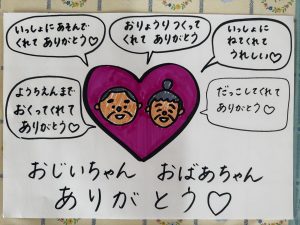 いっしょにあそんで
くれて ありがとう♡
おりょうりつくって
くれて ありがとう
いっしょに
ねてくれて
うれしい♡
ようちえんまで
おくってくれて
ありがとう♡
だっこしてくれて
ありがとう♡
おじいちゃん おばあちゃん
ありがとう♡